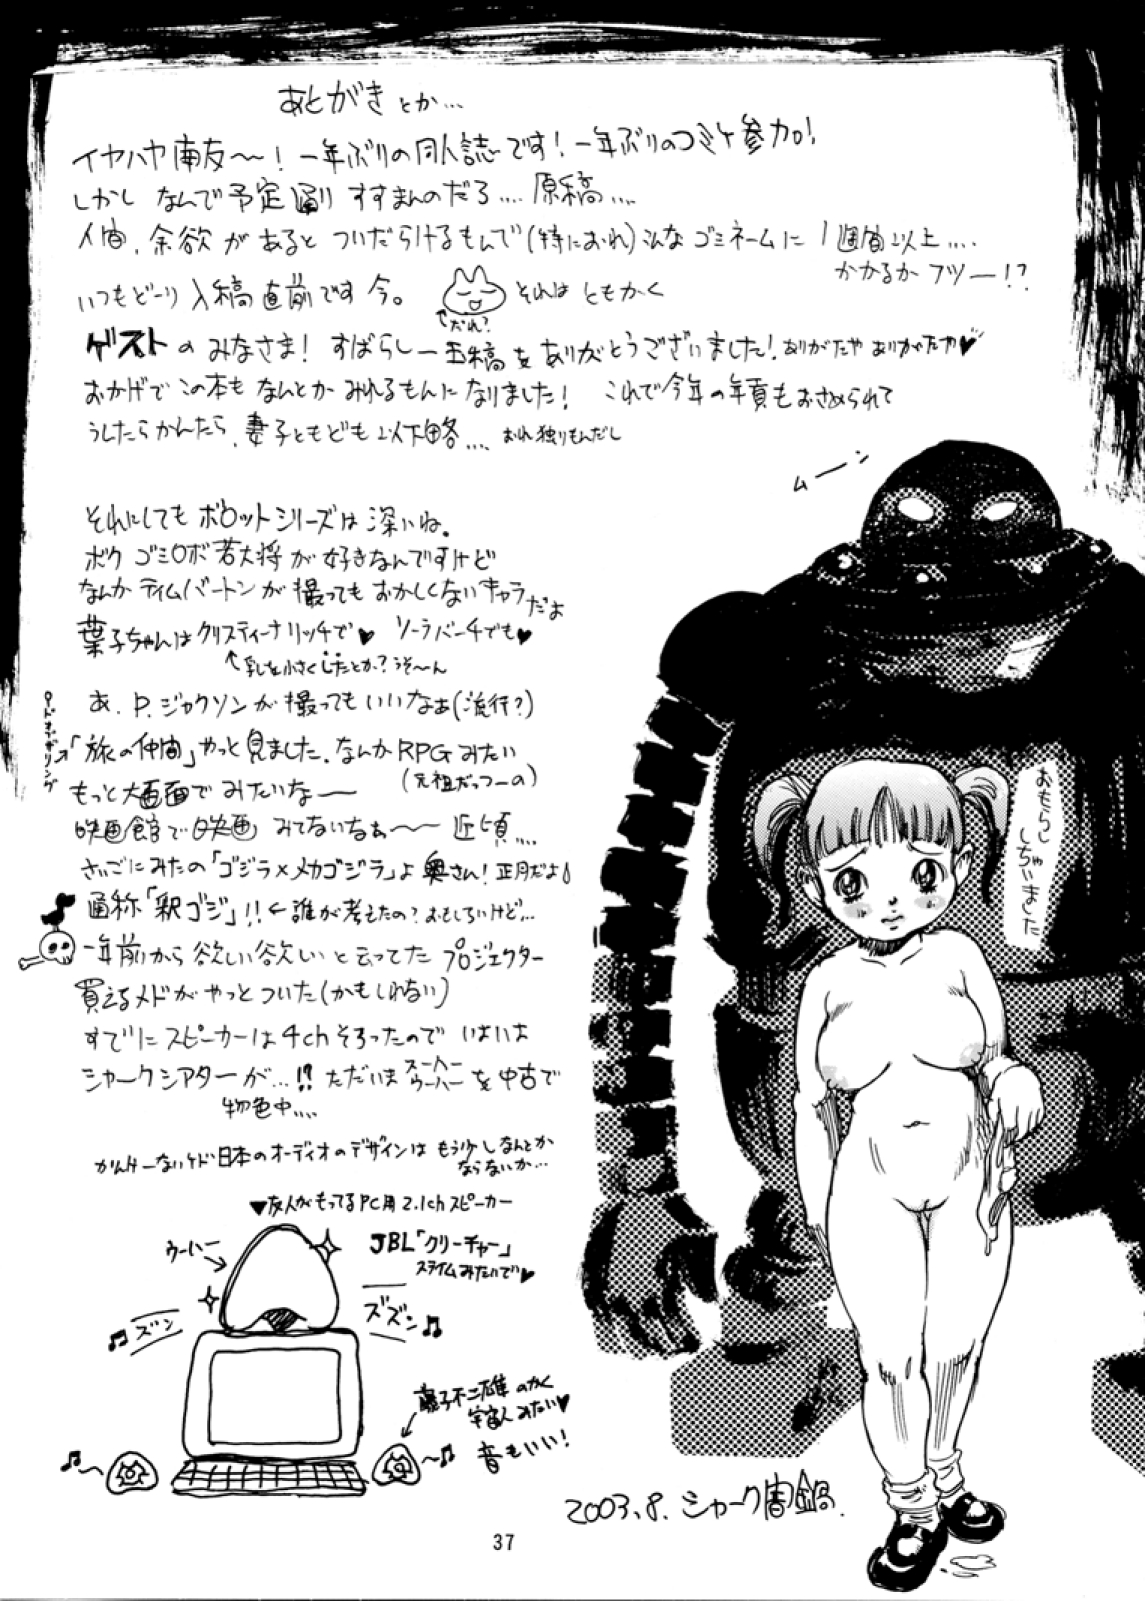 あとがきとか…
イヤハヤ南友〜！一年ぶりの同人誌です！一年ぶりのコミケ参加！
しかし なんで予定通り すすまんのだろ…. 原稿….
人間、余欲があると ついだらけるもんで(特におれ)こんなゴミネームに 1週間以上….
かかるかフツー！？
いつもどーり 入稿直前です 今。 それは ともかく
↑だれ？
ゲストのみなさま！ すばらしー玉稿をありがとうございました！ありがたやありがたや♥
おかげでこの本も なんとか みれるもんになりました！ これで今年の年貢もおさめられて
うしたらかんたら、妻子ともども以下略…. おれ独りもんだし
それにしても ボロットシリーズは深いね。
ボク ゴミロボ若大将が好きなんですけど
なんか ティムバートンが撮ってもおかしくないキャラだよ
葉子ちゃんはクリスティーナリッチで♥ ソーラバーチでも♥
↑乳を小さくしたとか？うそ〜ん
あ、P.ジャクソンが撮ってもいいなぁ(流行？)
「旅の仲間」やっと見ました、なんかRPGみたい
(元祖だっつーの)
もっと大画面でみたいなー
映画館で映画 みてないなぁ〜〜 近頃….
さいごにみたの「ゴジラ×メカゴジラ」よ奥さん！正月だよ！
通称「釈ゴジ」!!←誰が考えたの？おもしろいけど…
一年前から欲しい欲しいと云ってたプロジェクター
買えるメドがやっとついた(かもしれない)
すでにスピーカーは4chそろったので いよいよ
シャークシアターが…!? ただいま スーパーウーハーを中古で
物色中….
かんけーないケド日本のオーディオのデザインは もう少しなんとか
ならないか…
▼友人がもってるPC用2.1chスピーカー
ウーハー→
JBL「クリーチャー」
スライムみたいで♥
♫ズン
ズズン♫
藤子不二雄のかく
宇宙人みたい♥
音もいい！
ムーン
おもらし
しちゃいました
2003.8. シャーク闇鍋.
37